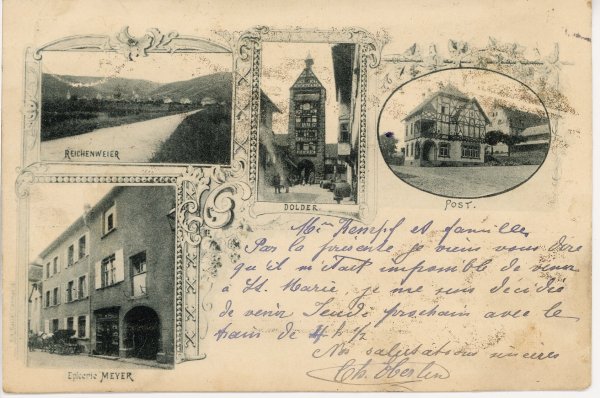 REICHENWEIER
DOLDER.
POST.
Epicerie MEYER
Mr Kempf et famille
Par la présente je viens vous dire
qu'il m'était impossible de venir
à Ste Marie, je me suis décidé
de venir Jeudi prochain avec le
train de 4 h ½
Nos salutations sincères
Ch. Oberlin